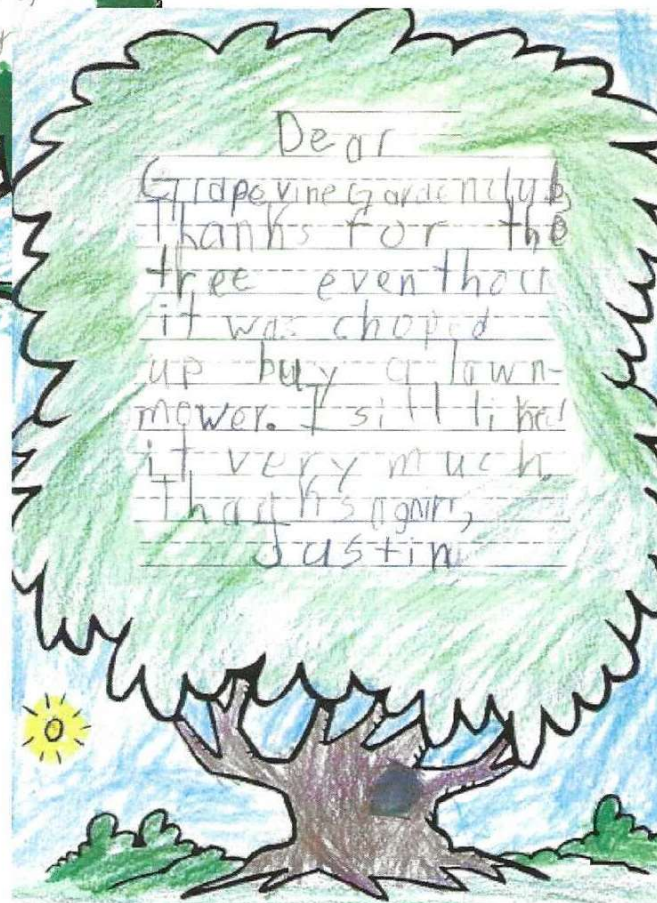 Dear
Grapevine Garden Club,
Thanks for the
tree eventhou
it was choped
up buy a lawn-
mower. I still liked
it very much.
Thanks again,
Justin